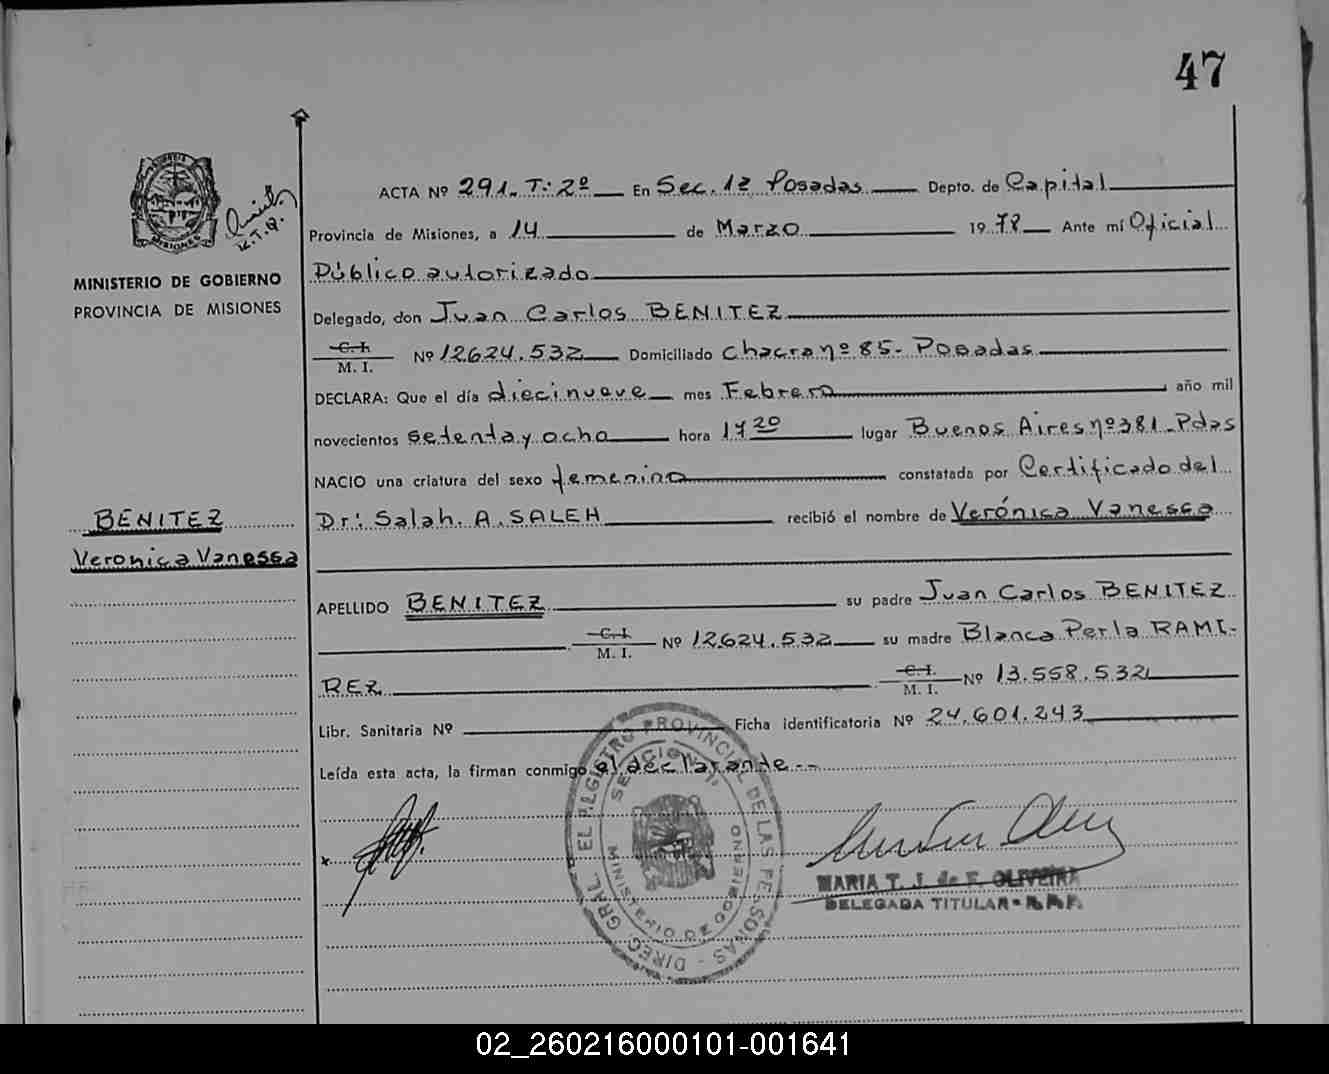 47
ACTA Nº 291. T: 2º En Sec. 1ª Posadas Depto. de Capital
Provincia de Misiones, a 14 de Marzo 1978 Ante mí Oficial
Público autorizado
MINISTERIO DE GOBIERNO
PROVINCIA DE MISIONES
Delegado, don Juan Carlos BENITEZ
C.I. M. I. Nº 12.624.532 Domiciliado Chacra nº 85- Posadas
DECLARA: Que el día diecinueve mes Febrero año mil
novecientos setenta y ocho hora 17 20 lugar Buenos Aires nº 381-Pdas
NACIO una criatura del sexo femenino constatada por Certificado del
BENITEZ
Veronica Vanessa
Dr: Salah. A. SALEH recibió el nombre de Verónica Vanessa
APELLIDO BENITEZ su padre Juan Carlos BENITEZ
C.I. M. I. Nº 12.624.532 su madre Blanca Perla RAMI-
REZ C.I. M. I. Nº 13.558.532
Libr. Sanitaria Nº Ficha identificatoria Nº 24.601.243
Leída esta acta, la firman conmigo el declarante.--
DIREC. GRAL. EL REGISTRO PROVINCIAL DE LAS PERSONAS
MINISTERIO DE GOBIERNO
MARIA T. J. de F. OLIVEIRA
DELEGADA TITULAR - R.P.P.
02_260216000101-001641